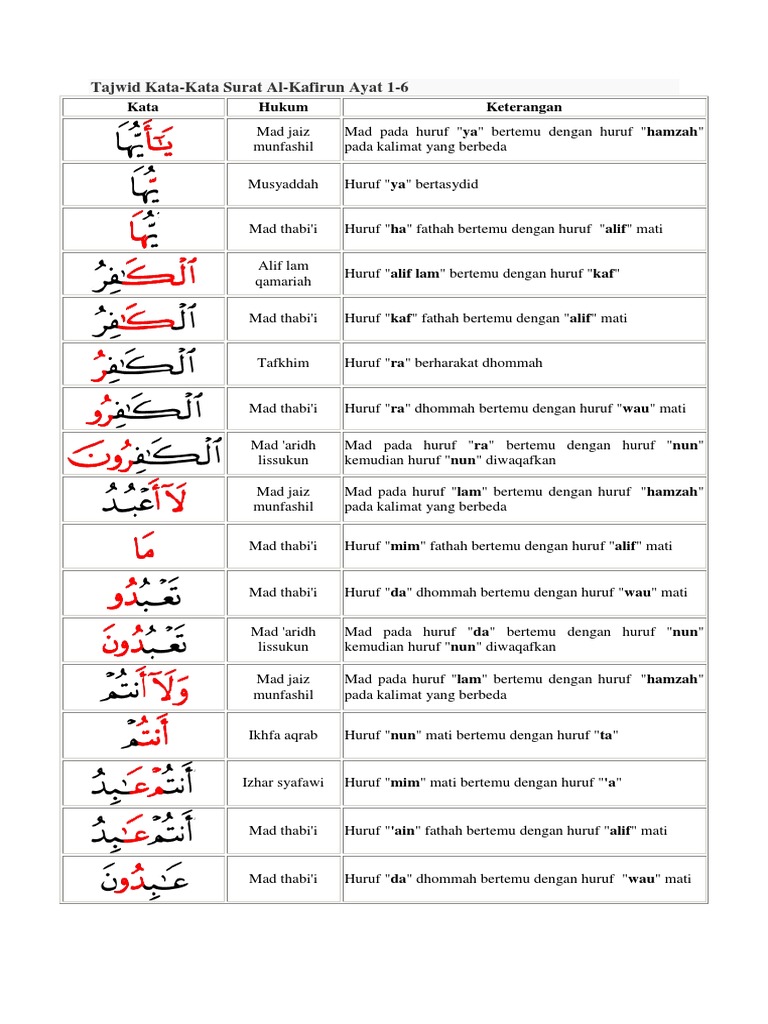 Tajwid Kata-Kata Surat Al-Kafirun Ayat 1-6
Kata Hukum Keterangan
يَٰٓأَيُّهَا Mad jaiz munfashil Mad pada huruf "ya" bertemu dengan huruf "hamzah"
pada kalimat yang berbeda
يُّهَا Musyaddah Huruf "ya" bertasydid
يُّهَا Mad thabi'i Huruf "ha" fathah bertemu dengan huruf "alif" mati
ٱلْكَٰفِرُ Alif lam qamariah Huruf "alif lam" bertemu dengan huruf "kaf"
ٱلْكَٰفِرُ Mad thabi'i Huruf "kaf" fathah bertemu dengan "alif" mati
ٱلْكَٰفِرُ Tafkhim Huruf "ra" berharakat dhommah
ٱلْكَٰفِرُو Mad thabi'i Huruf "ra" dhommah bertemu dengan huruf "wau" mati
ٱلْكَٰفِرُونَ Mad 'aridh lissukun Mad pada huruf "ra" bertemu dengan huruf "nun"
kemudian huruf "nun" diwaqafkan
لَآ أَعْبُدُ Mad jaiz munfashil Mad pada huruf "lam" bertemu dengan huruf "hamzah"
pada kalimat yang berbeda
مَا Mad thabi'i Huruf "mim" fathah bertemu dengan huruf "alif" mati
تَعْبُدُو Mad thabi'i Huruf "da" dhommah bertemu dengan huruf "wau" mati
تَعْبُدُونَ Mad 'aridh lissukun Mad pada huruf "da" bertemu dengan huruf "nun"
kemudian huruf "nun" diwaqafkan
وَلَآ أَنتُمْ Mad jaiz munfashil Mad pada huruf "lam" bertemu dengan huruf "hamzah"
pada kalimat yang berbeda
أَنتُمْ Ikhfa aqrab Huruf "nun" mati bertemu dengan huruf "ta"
أَنتُمْ عَٰبِدُ Izhar syafawi Huruf "mim" mati bertemu dengan huruf "'a"
أَنتُمْ عَٰبِدُ Mad thabi'i Huruf "'ain" fathah bertemu dengan huruf "alif" mati
عَٰبِدُونَ Mad thabi'i Huruf "da" dhommah bertemu dengan huruf "wau" mati